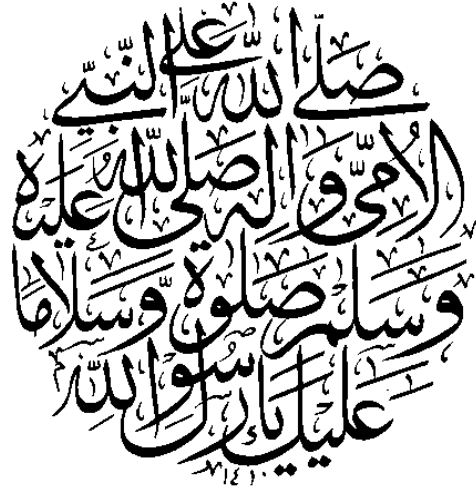 صلى الله على النبي
الأمي وآله صلى الله عليه
وسلم صلوة وسلاما
عليك يا رسول الله
١٤١٠